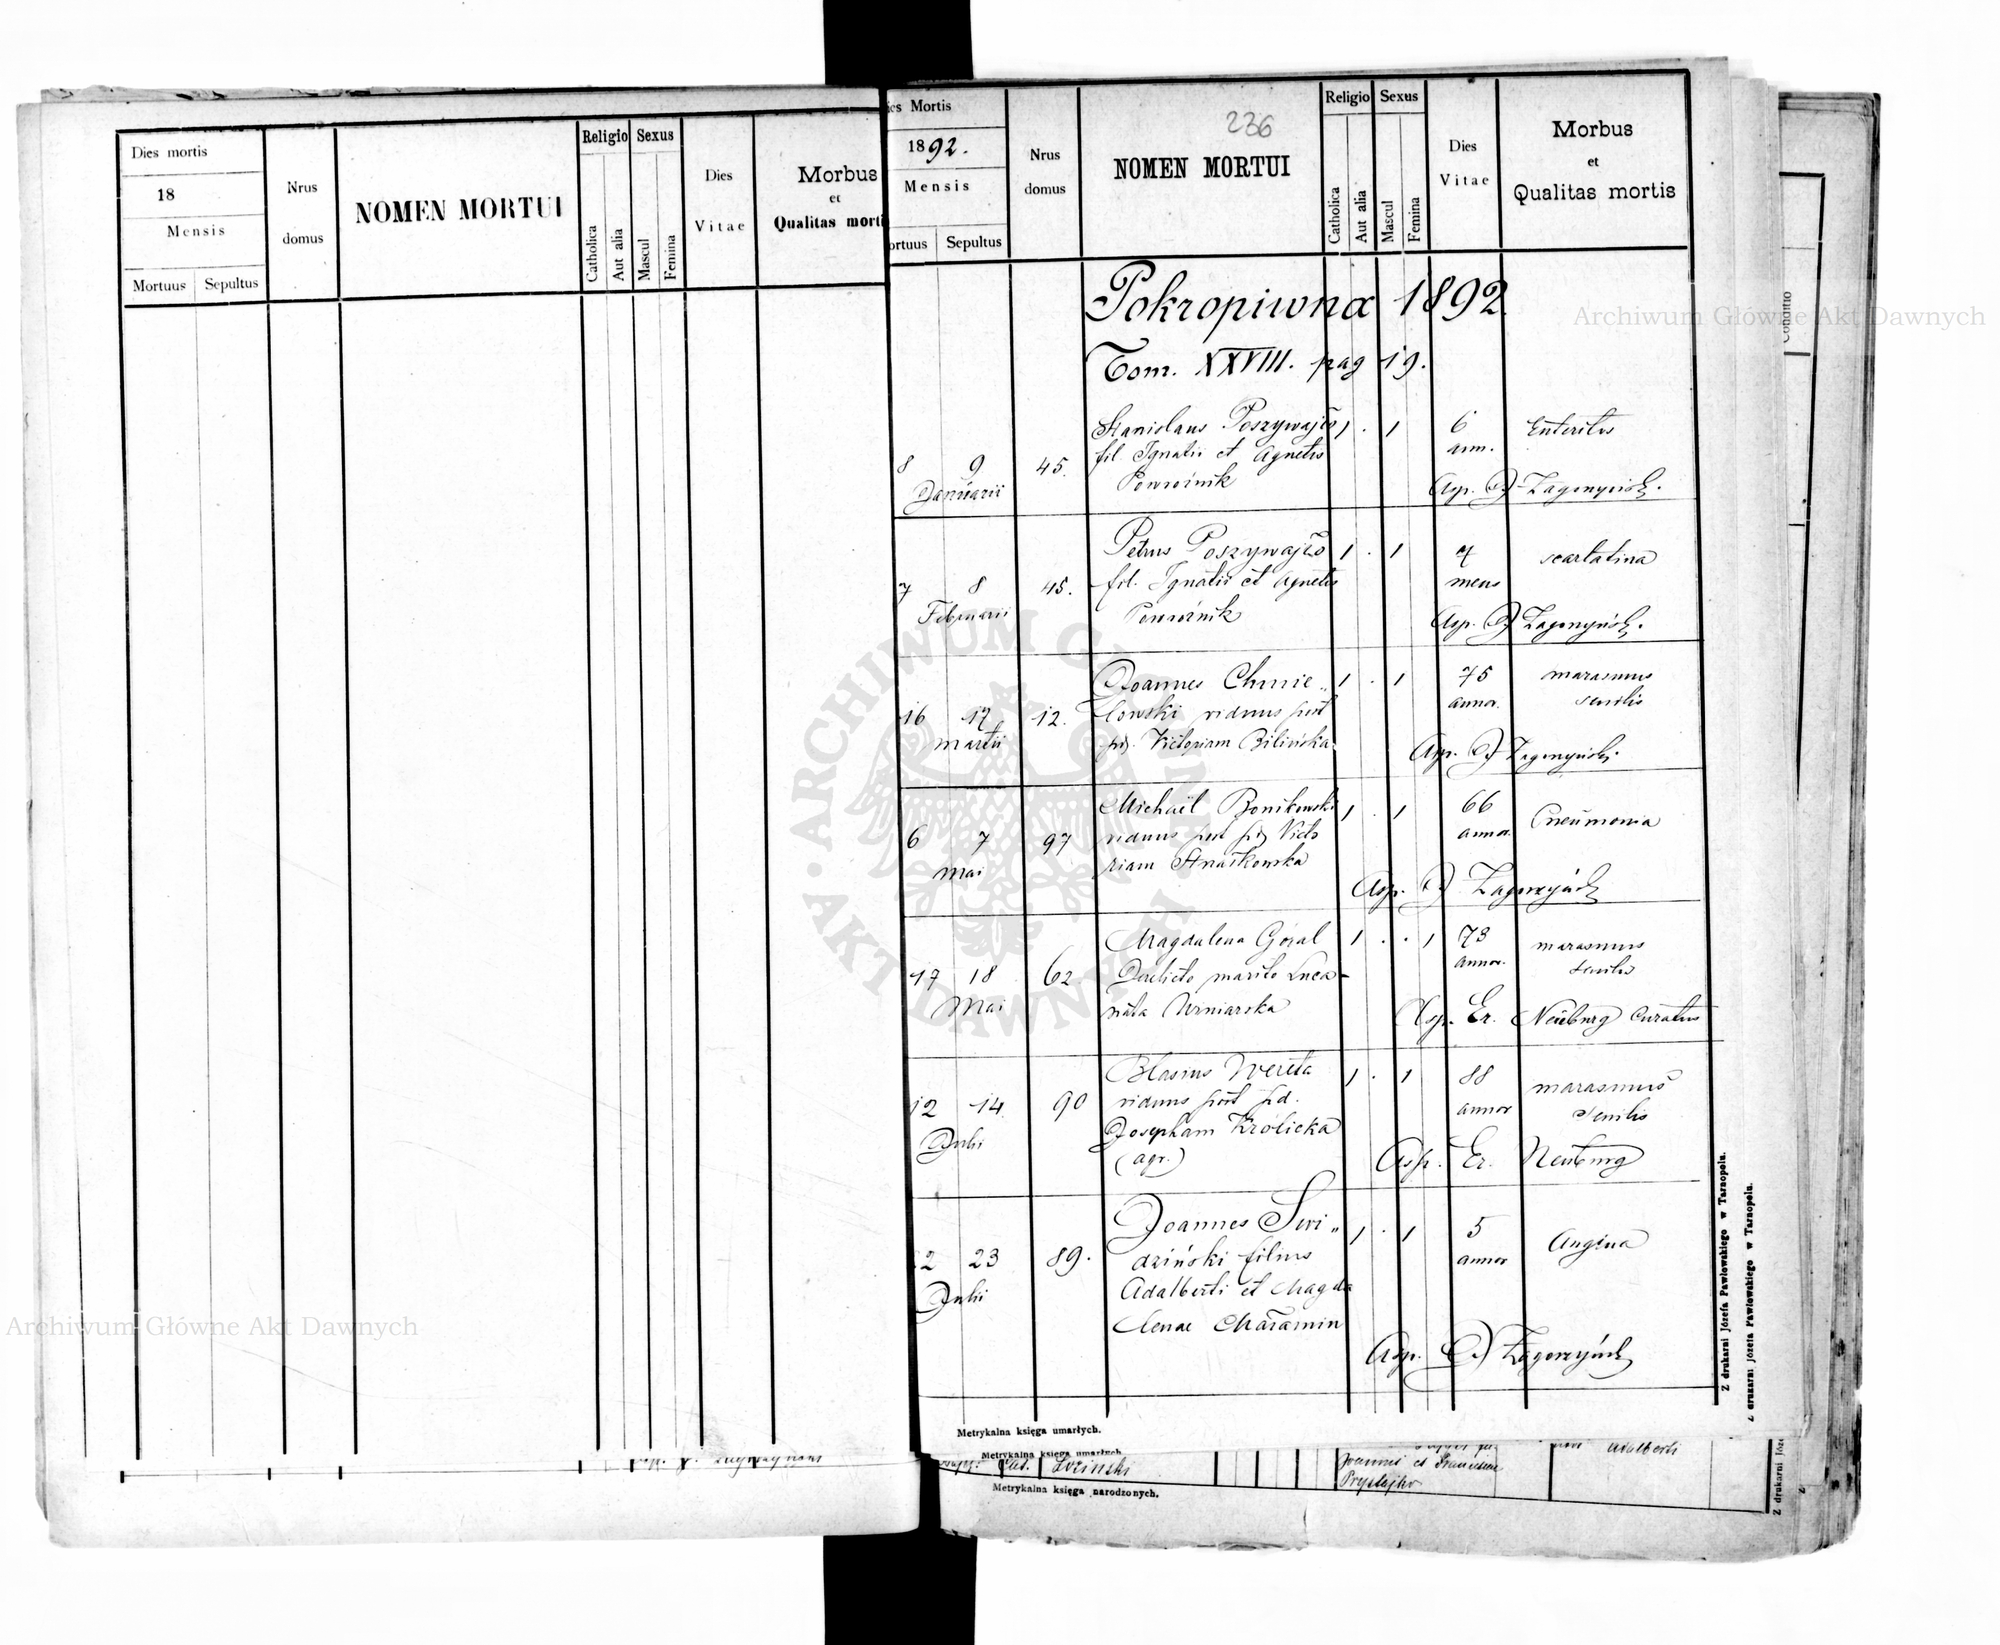 Dies mortis
18
Mensis
Mortuus Sepultus
Nrus
domus
NOMEN MORTUI
Religio Sexus
Catholica
Aut alia
Mascul
Femina
Dies
Vitae
Morbus
et
Qualitas morti
Mortis
1892.
Mensis
Sepultus
Nrus
domus
236
NOMEN MORTUI
Religio Sexus
Catholica
Aut alia
Mascul
Femina
Dies
Vitae
Morbus
et
Qualitas mortis
Pokropiwna 1892.
Tom. XXVIII. pag 19.
8 9
Januarii
45.
Stanislaus Poszywajło
fil. Ignatii et Agnetis
Powroźnik
1 . 1
6
ann.
Enteritis
Asp. J Zagorzyński.
7 8
Februarii
45.
Petrus Poszywajło
fil. Ignatii et Agnetis
Powroźnik
1 . 1
7
mens
scarlatina
Asp. J Zagorzyński.
16 17
Martii
12.
Joannes Chmie„
lowski viduus post
pd. Victoriam Bilińska
1 . 1
75
annor.
marasmus
senilis
Asp. J Zagorzyński.
6 7
Mai
97
Michaël Bonikowski
viduus post pd Victo
riam
1 . 1
66
annor
Pneumonia
Asp. J Zagorzyński
17 18
Mai
62
Magdalena Góral
Derelicto marito Luca
nata Urniarska
1 . . 1
73
annor.
marasmus
senilis
Asp. Er. Neuburg Curatus
12 14
Julii
90
Blasius Wereta
viduus post pd.
Josepham Królicka
(agr.)
1 . 1
88
annor
marasmus
senilis
Asp. Er. Neuburg
2 23
Julii
89.
Joannes Swi„
dziński filius
Adalberti et Magda
lenae Maramin
1 . 1
5
annor
Angina
Asp. J Zagorzyński
Z drukarni Józefa Pawłowskiego w Tarnopolu.
Z drukarni Józefa Pawłowskiego w Tarnopolu.
Metrykalna księga umarłych.
Metrykalna księga umarłych
Łoziński
Joannis et Franciscae
Prystajko
Adalberti
Metrykalna księga narodzonych.
Z drukarni Józe
Conditio
Archiwum Główne Akt Dawnych
Archiwum Główne Akt Dawnych
ARCHIWUM GŁÓWNE AKT DAWNYCH